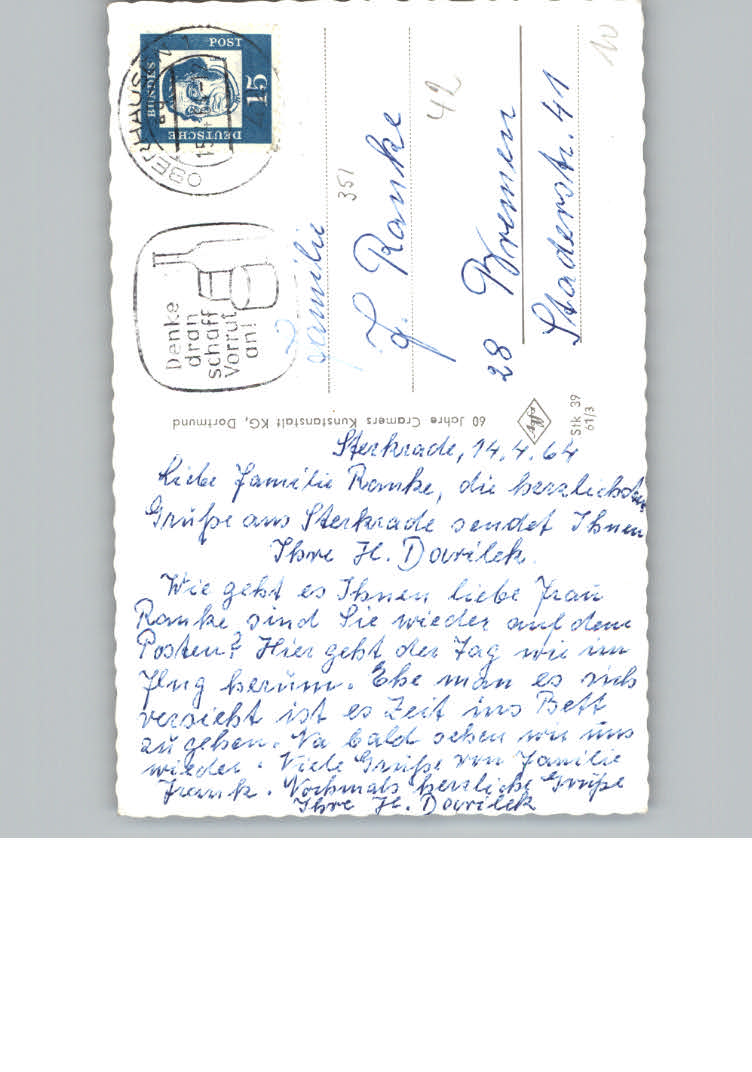 DEUTSCHE
BUNDES
POST
15
OBERHAUSEN
Denke
dran
schaff
Vorrat
an!
Familie
Ranke
28 Bremen
Staderstr. 41
351
42
10
60 Jahre Cramers Kunstanstalt KG, Dortmund
Stk 39
61/3
Sterkrade, 14.4.64
Liebe Familie Ranke, die herzlichsten
Grüße aus Sterkrade sendet Ihnen
Ihre H. Davilek.
Wie geht es Ihnen liebe Frau
Ranke sind Sie wieder auf dem
Posten? Hier geht der Tag wie im
Flug herum. Ehe man es sich
versieht ist es Zeit ins Bett
zu gehen. Na bald sehen wir uns
wieder. Viele Grüße von Familie
Frank. Nochmals herzliche Grüße
Ihre H. Davilek